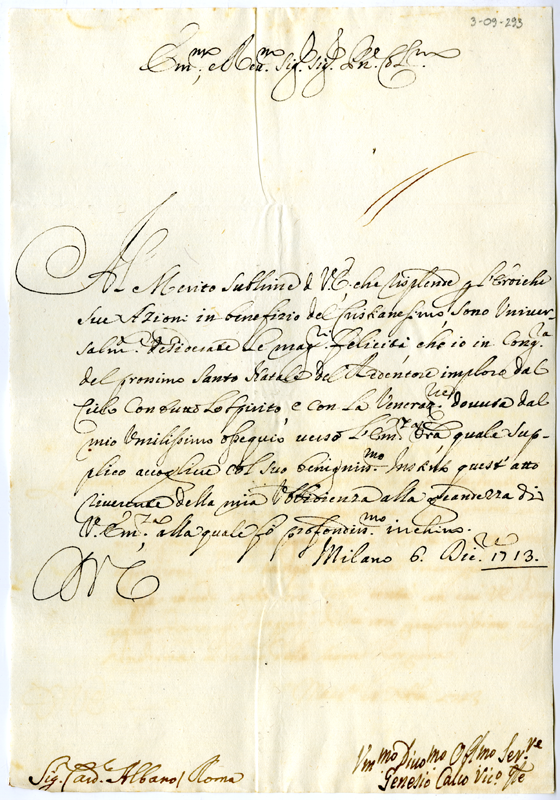 3-09-293
Em.mo e Reu.mo Sig.r Sig.r P.ne Col.mo
Al Merito Sublime di V.E. che risplende p l'Eroiche
sue Azioni in benefizio del Cristianesimo sono Univer
salm.te desiderate le mag.ri felicità che io in Cong.a
del prossimo Santo Natale del Redentore imploro dal
Cielo con tutto lo Spirito e con la Veneraz.ne douuta dal
mio Vmilissimo ossequio uerso l'Em.za V.ra quale sup
plico accogliere col suo benignis.mo quest'atto
riuerente della mia Vbbidienza alla grandezza di
V.a Em.za alla quale fò profondiss.mo inchino.
Milano 6. Dic.re 1713.
Sig.r Card.le Albano / Roma
Vm.mo Diuo.mo Oss.mo Ser.re
Genesio Calco Vic.o